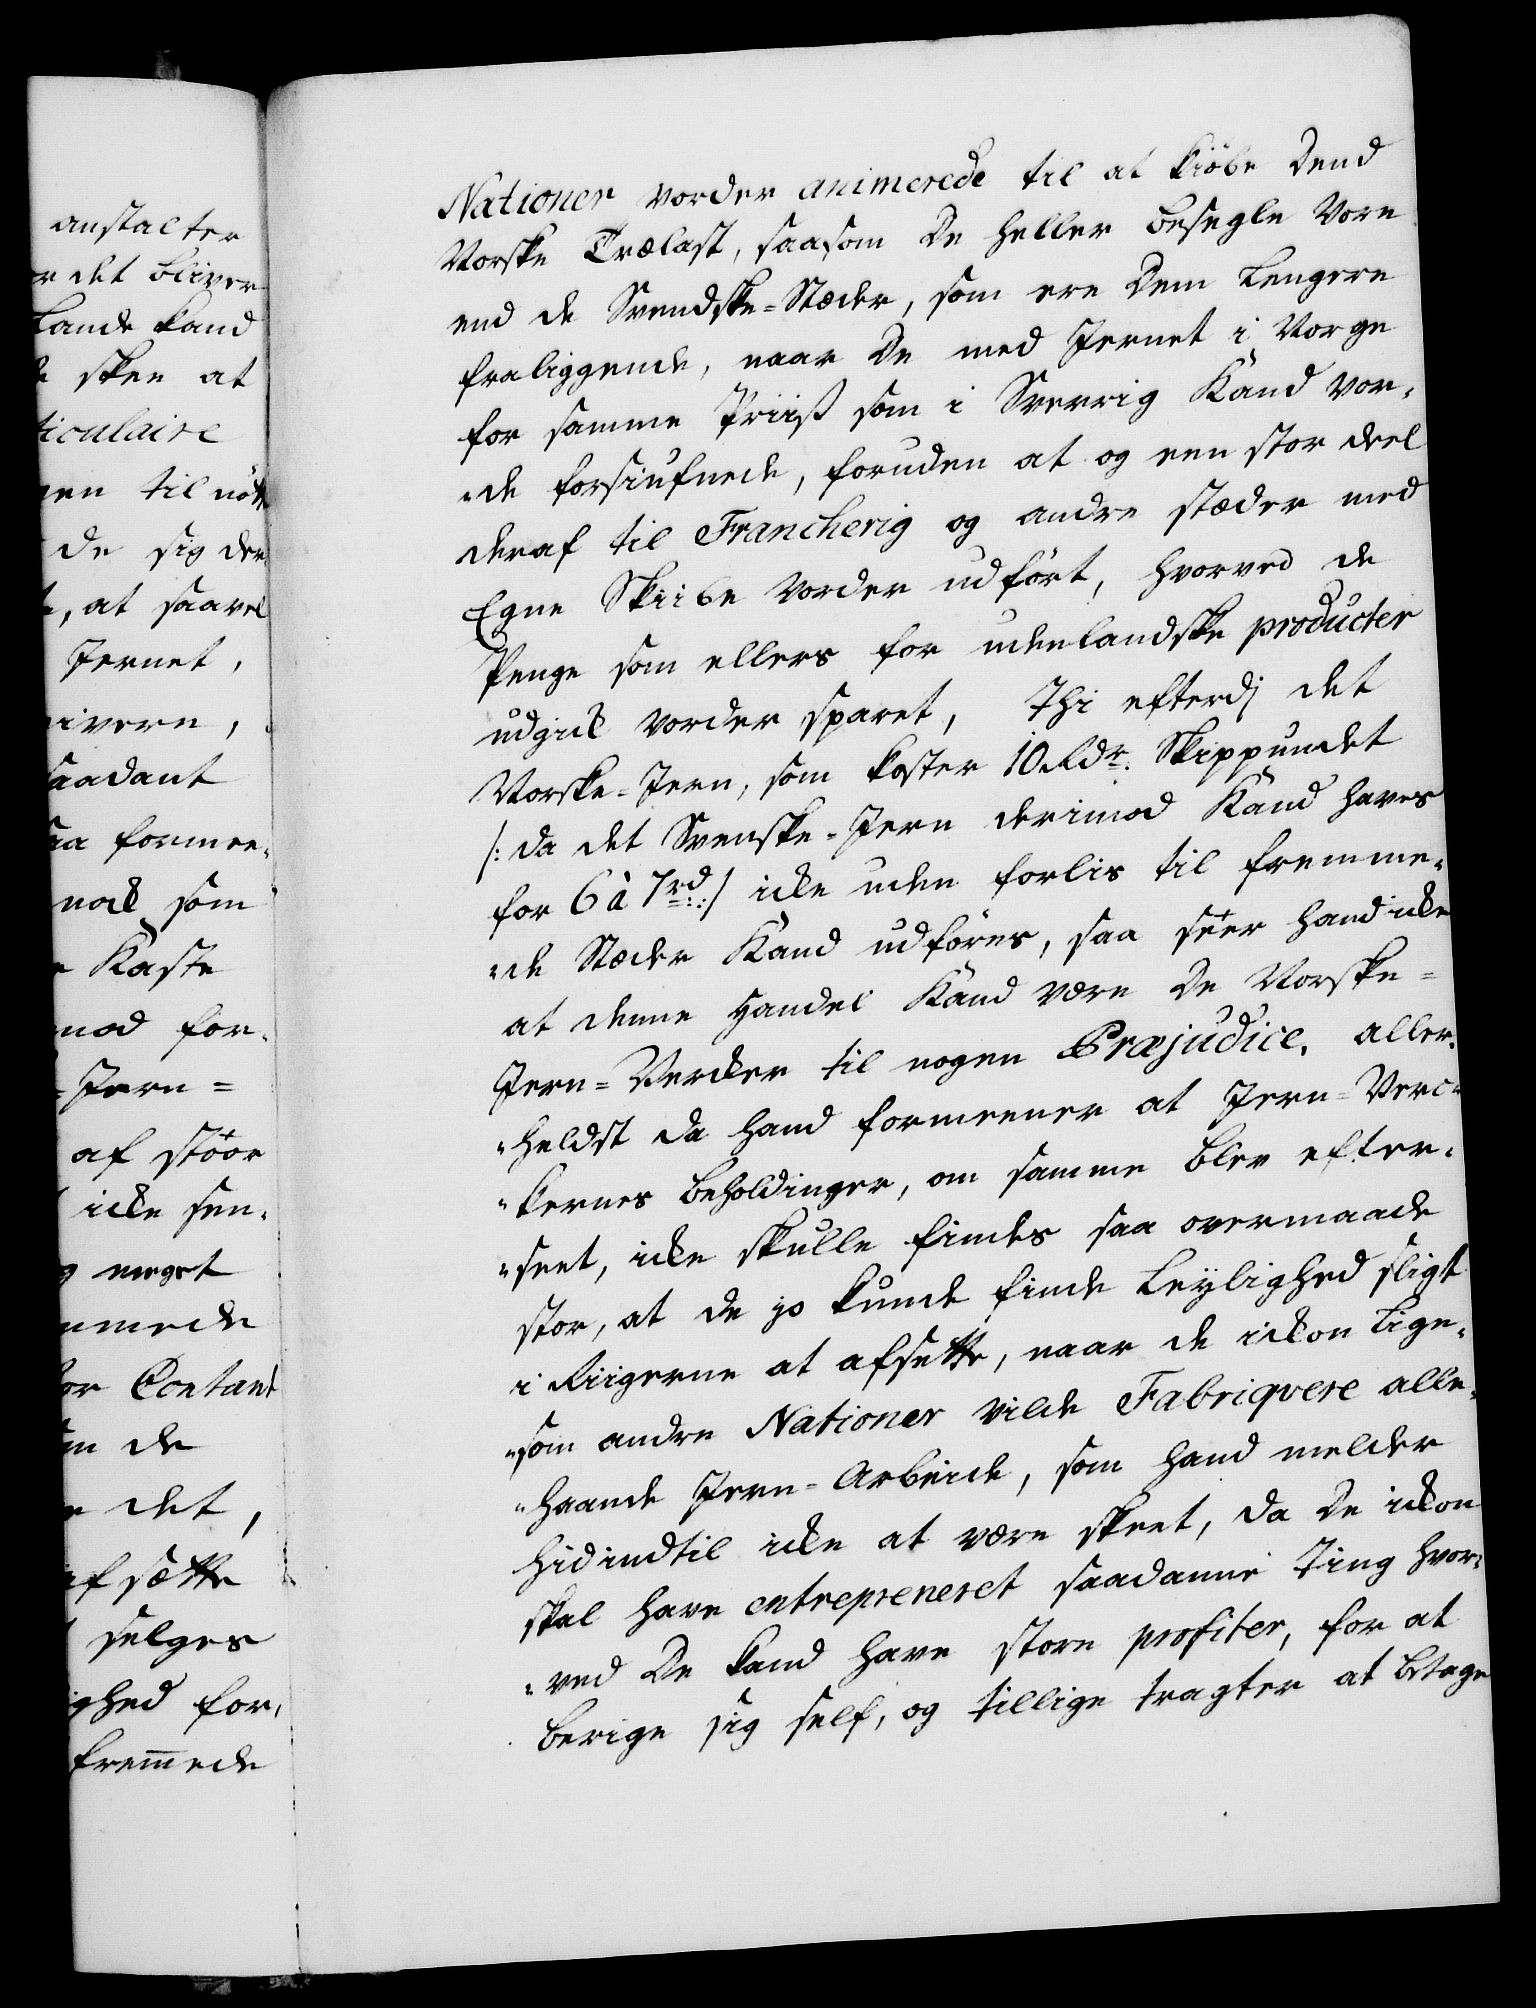 anstalter
r det bliver
Lande kand
sker at
ticulaire
en til nött
de sig der
, at saavel
Jernet,
ivern,
saadant
aa formee-
nok som
Kaste
mod for-
Jern=
af stöor
icke sen-
g meget
mmede
or Contant
de
det,
afsætte
selges
ighed for,
fremmede
Nationer vorder animerede til at kiöbe dend
Norske Trælast, saasom de heller besegle vore
end de Svendske-Stæder, som ere dem Lengere
fraliggende, naar de med Jernet i Norge
for samme Priiß som i Sverrig Kand vor-
-de forsiufnede, foruden at og een stor deel
deraf til Francherig og andre stæder med
Egne Skiibe vorder udfört, hvorved de
Penge som ellers for udenlandske producter
udgik vorder sparet, Thi efterdj det
Norske-Jern, som koster 10 Rdr. Skippundet
/: da det Svenske-Jern derimod Kand haves
for 6 à 7 rd :/ icke uden forlis til fremme-
-de Stæder Kand udföres, saa seer hand icke
at denne Handel Kand være de Norske=
Jern=Vercker til nogen Præjudice, aller-
-heldst da hand formeener at Jern=Verc-
-kernes beholdinger, om samme blev efter-
-seet, icke skulle findes saa overmaade
stor, at de jo kunde finde Leylighed sligt
i Riigerne at afsætte, naar de ickon Lige-
-som andre Nationer vilde Fabriqvere alle-
-haande Jern=Arbeide, som hand melder
hidindtil icke at være skeet, da de ickon
skal have entrepreneret saadanne Ting hvor-
-ved de kand have store profiter, for at
berige sig self, og tillige tragter at betage